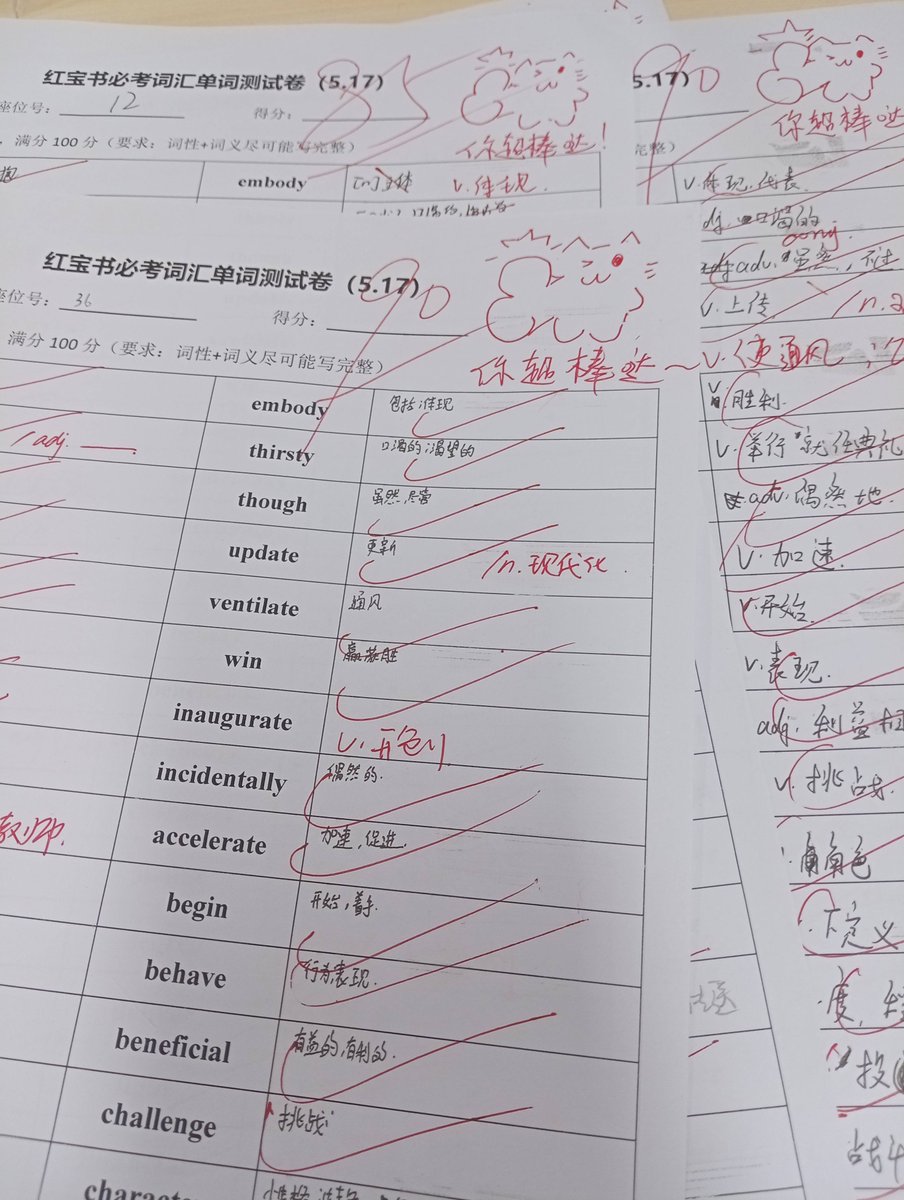 红宝书必考词汇单词测试卷（5.17）
85
座位号： 12
得分：
你超棒哒！
满分 100 分（要求：词性+词义尽可能写完整）
抱
embody
[n.]主体
v.体现
5.17）
90
你超棒哒
完整）
v.体现.代表
adv. 虽然，
conj.
v.上传.
/n.
v.使通风
v.胜利.
v.举行 就任典礼
adv.偶然地.
v.加速.
v.开始.
v.表现.
adj.利益
v.挑战.
角色
下定义
度，
投
战斗
红宝书必考词汇单词测试卷（5.17）
90
座位号： 36
得分：
你超棒哒~
满分 100 分（要求：词性+词义尽可能写完整）
embody 包括;体现
/adj.
thirsty 口渴的;渴望的
though 虽然,尽管
update 更新 /n.现代化
ventilate 通风
win 赢,获胜
inaugurate v.开创
incidentally 偶然的.
教师.
accelerate 加速,促进.
begin 开始,着手.
behave 行为,表现.
beneficial 有益的,有利的.
challenge 挑战